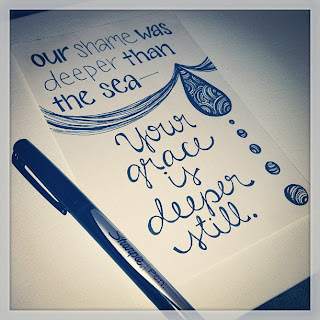 our shame was
deeper than
the sea—
Your
grace
is
deeper
still.
Sharpie PEN